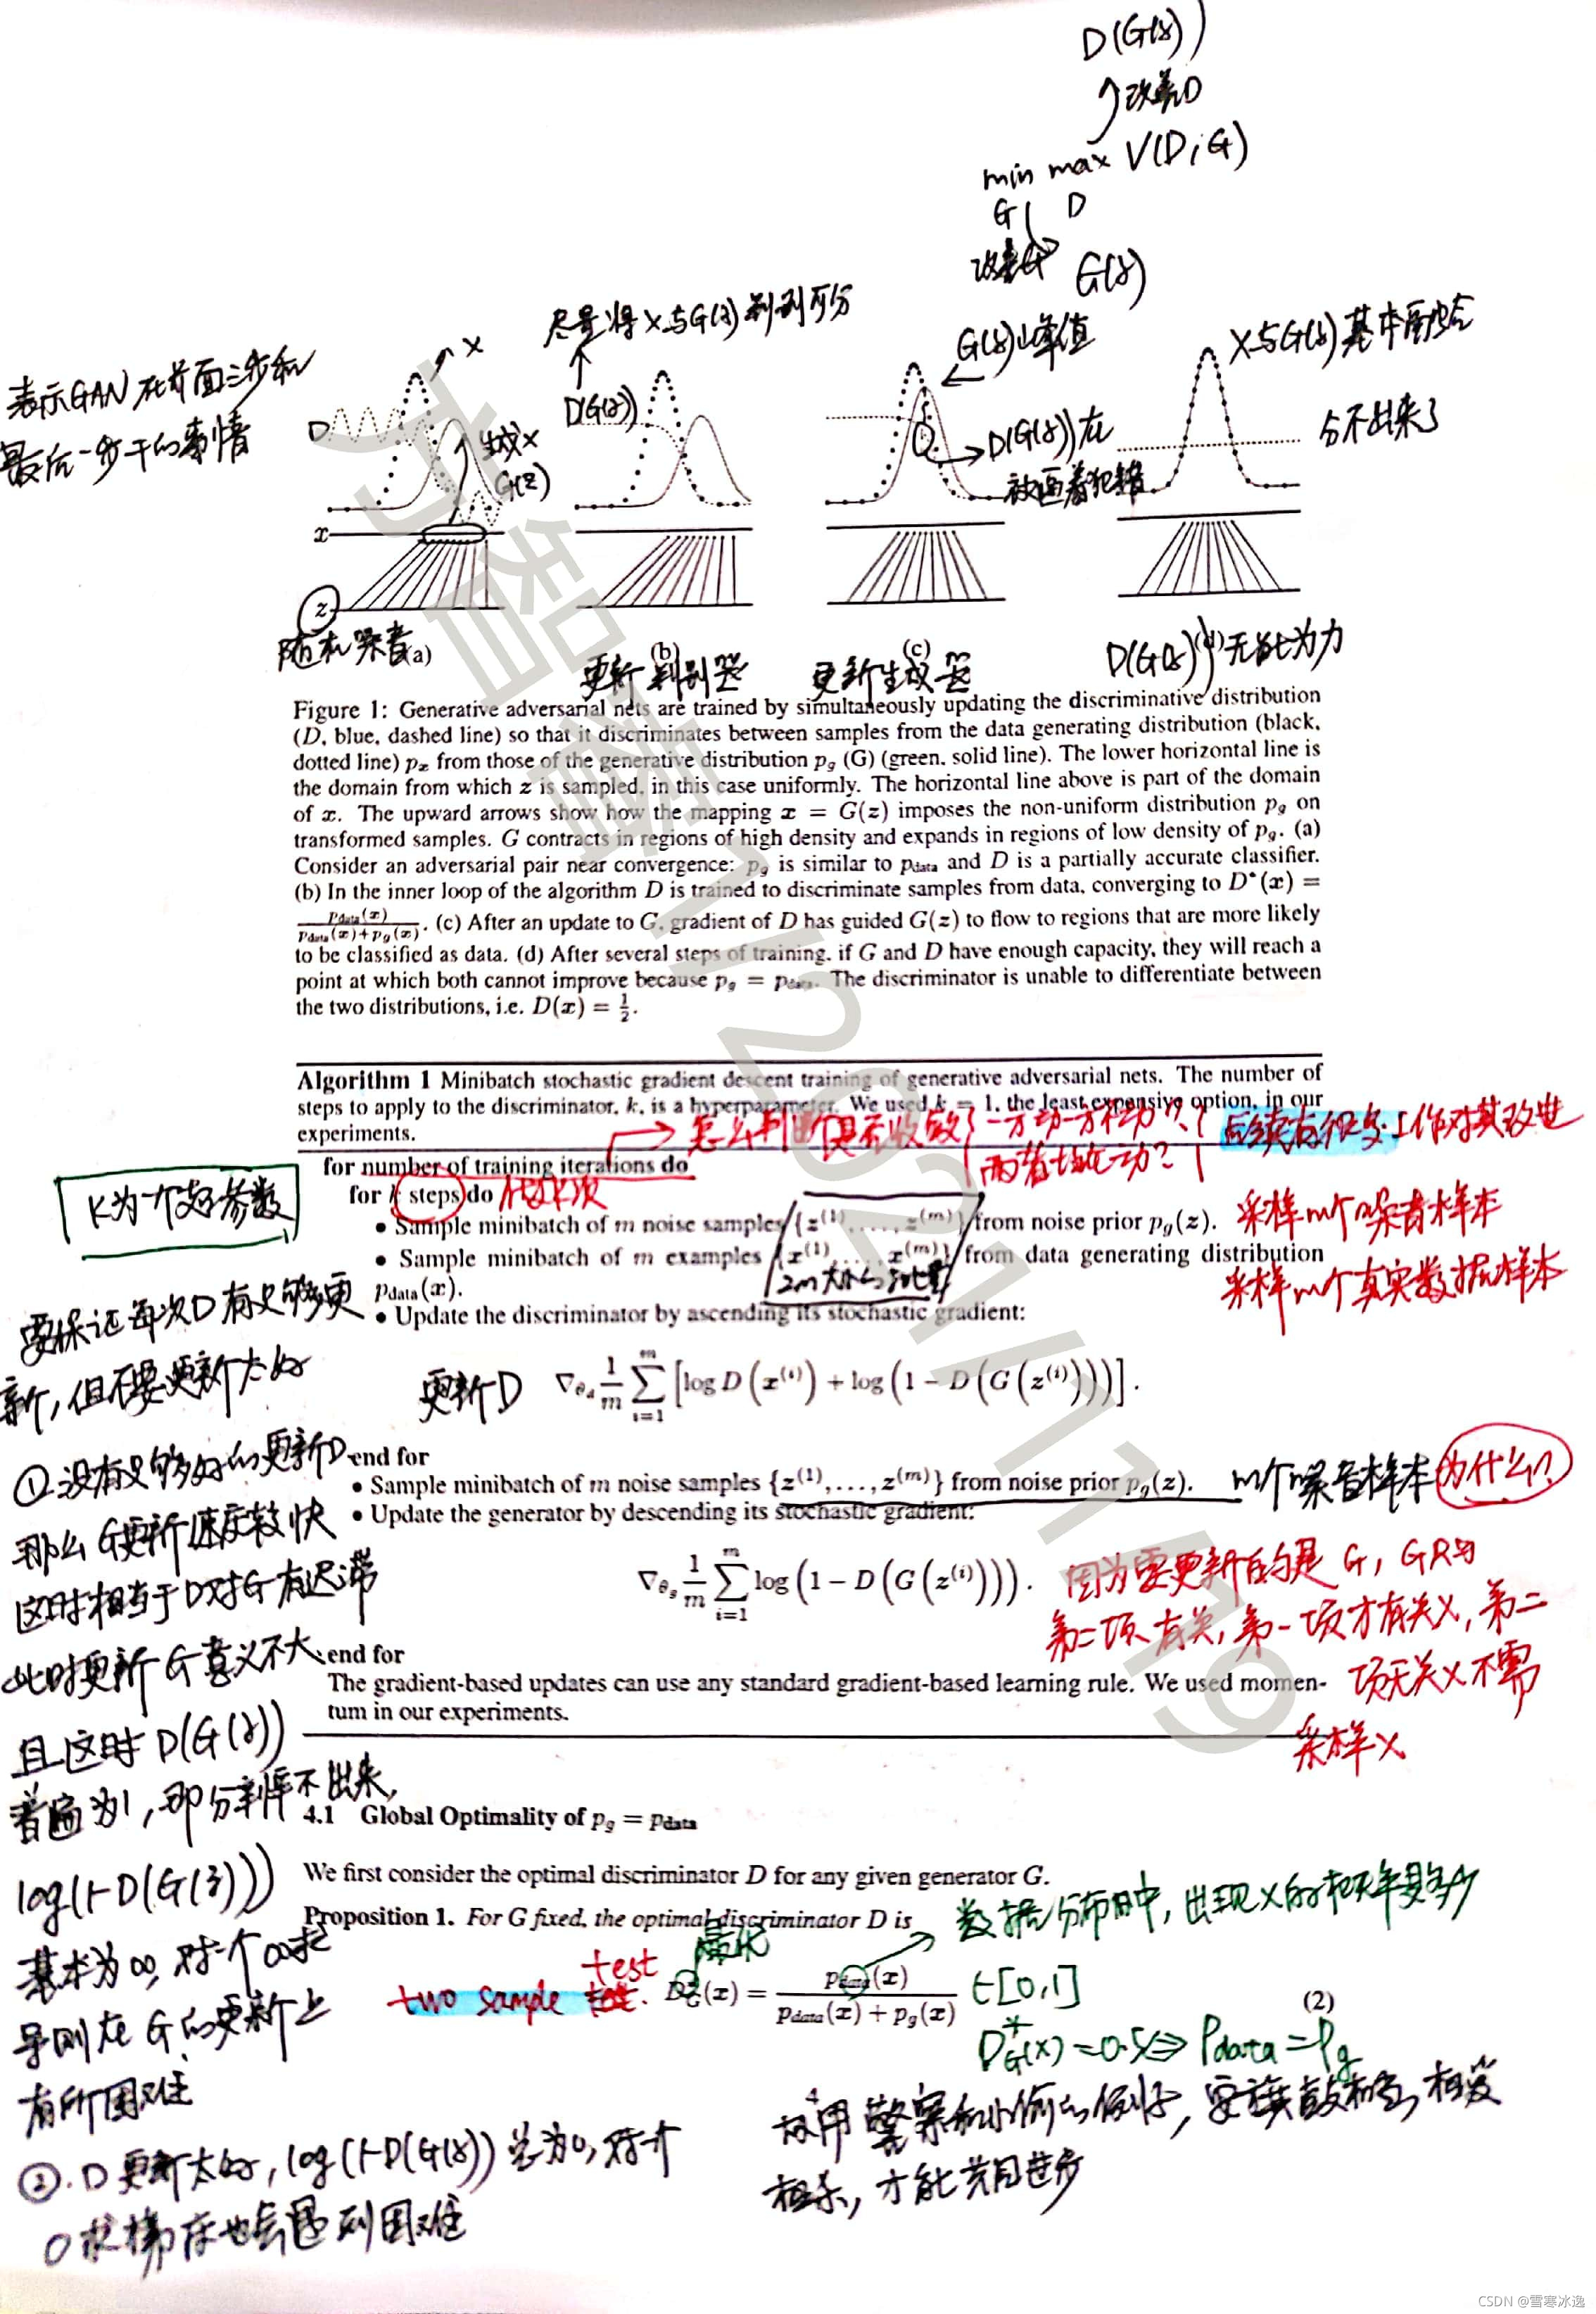 D(G(z))
改善D
min max V(D,G)
G D
改善G
G(z)
尽量将X与G(z)判别可分
G(z)峰值
X与G(z)基本融合
分不出来了
表示GAN在前面三步和
最后一步干的事情
X
D
生成X
G(z)
D(G(z))
D(G(z))在
被逼着犯错
x
z
随机噪音
(a)
(b)
更新判别器
(c)
更新生成器
(d)
D(G(z))无能为力
Figure 1: Generative adversarial nets are trained by simultaneously updating the discriminative distribution
(D, blue, dashed line) so that it discriminates between samples from the data generating distribution (black,
dotted line) pₓ from those of the generative distribution p_g (G) (green, solid line). The lower horizontal line is
the domain from which z is sampled, in this case uniformly. The horizontal line above is part of the domain
of x. The upward arrows show how the mapping x = G(z) imposes the non-uniform distribution p_g on
transformed samples. G contracts in regions of high density and expands in regions of low density of p_g. (a)
Consider an adversarial pair near convergence: p_g is similar to p_data and D is a partially accurate classifier.
(b) In the inner loop of the algorithm D is trained to discriminate samples from data, converging to D*(x) =
p_data(x) / (p_data(x)+p_g(x)). (c) After an update to G, gradient of D has guided G(z) to flow to regions that are more likely
to be classified as data. (d) After several steps of training, if G and D have enough capacity, they will reach a
point at which both cannot improve because p_g = p_data. The discriminator is unable to differentiate between
the two distributions, i.e. D(x) = 1/2.
Algorithm 1 Minibatch stochastic gradient descent training of generative adversarial nets. The number of
steps to apply to the discriminator, k, is a hyperparameter. We used k = 1, the least expensive option, in our
experiments.
怎么判断是否收敛? 一方动一方不动??
后续有很多工作对其改进
两者均在动?
for number of training iterations do
for k steps do
迭代k次
K为一个超参数
• Sample minibatch of m noise samples {z⁽¹⁾, . . . , z⁽ᵐ⁾} from noise prior p_g(z).
采样m个噪音样本
• Sample minibatch of m examples {x⁽¹⁾, . . . , x⁽ᵐ⁾} from data generating distribution
p_data(x).
2m大小的
采样m个真实数据样本
• Update the discriminator by ascending its stochastic gradient:
更新D
∇_θd 1/m Σ_{i=1}^m [log D(x⁽ⁱ⁾) + log(1 − D(G(z⁽ⁱ⁾)))].
end for
• Sample minibatch of m noise samples {z⁽¹⁾, . . . , z⁽ᵐ⁾} from noise prior p_g(z).
m个噪音样本
为什么?
• Update the generator by descending its stochastic gradient:
∇_θg 1/m Σ_{i=1}^m log(1 − D(G(z⁽ⁱ⁾))).
因为需更新的是G, G只与
第二项有关, 第一项才有关X, 第二
项无关X不需
采样X
end for
The gradient-based updates can use any standard gradient-based learning rule. We used momen-
tum in our experiments.
要保证每次D有足够更
新, 但不要更新太好
①.没有足够好的更新D
那么G更新速度较快
这时相当于D对G有迟滞
此时更新G意义不大
且这时D(G(z))
普遍为1, 即分辨不出来,
log(1-D(G(z)))
基本为∞, 对一个∞求
导则在G的更新上
有所困难
②. D更新太好, log(1-D(G(z)))总为0, 对一个
0求梯度也会遇到困难
4.1 Global Optimality of p_g = p_data
We first consider the optimal discriminator D for any given generator G.
Proposition 1. For G fixed, the optimal discriminator D is
数据分布中, 出现X的概率是多少
最优
two sample test.
D*_G(x) = p_data(x) / (p_data(x) + p_g(x))
∈[0,1]
(2)
D*_G(x)=0.5⇔ P_data=P_g
故用警察和小偷的例子, 要旗鼓相当, 相爱
相杀, 才能共同进步
方智睿1/2021/11/19
CSDN @雪寒冰逸